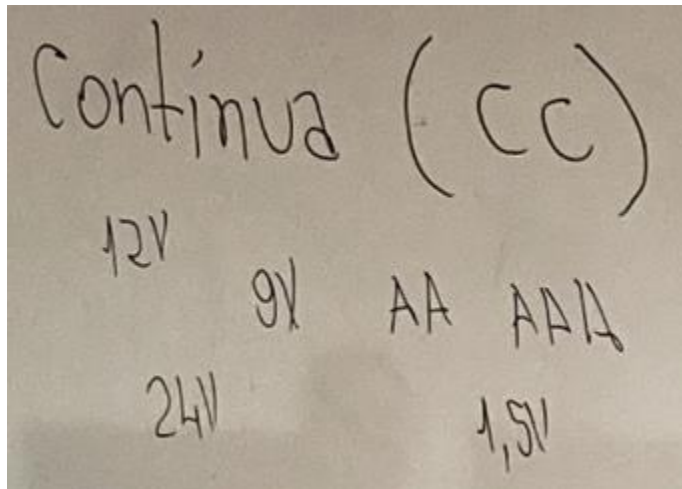 Contínua (CC)
12V
9V AA AAA
24V 1,5V